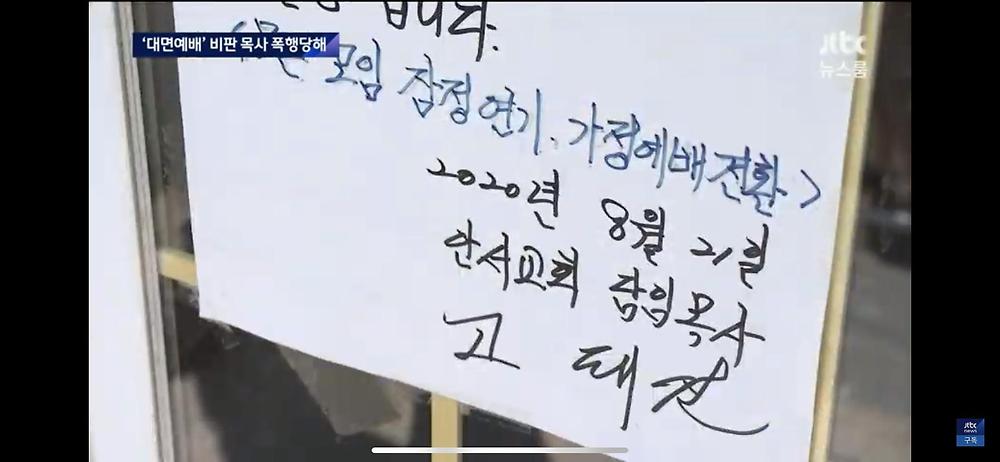 '대면예배' 비판 목사 폭행당해
jtbc
뉴스룸
니다.
모임 잠정 연기. 가정예배 전환>
2020년 8월 21일
안서교회 담임목사
고 태진
jtbc
news
구독